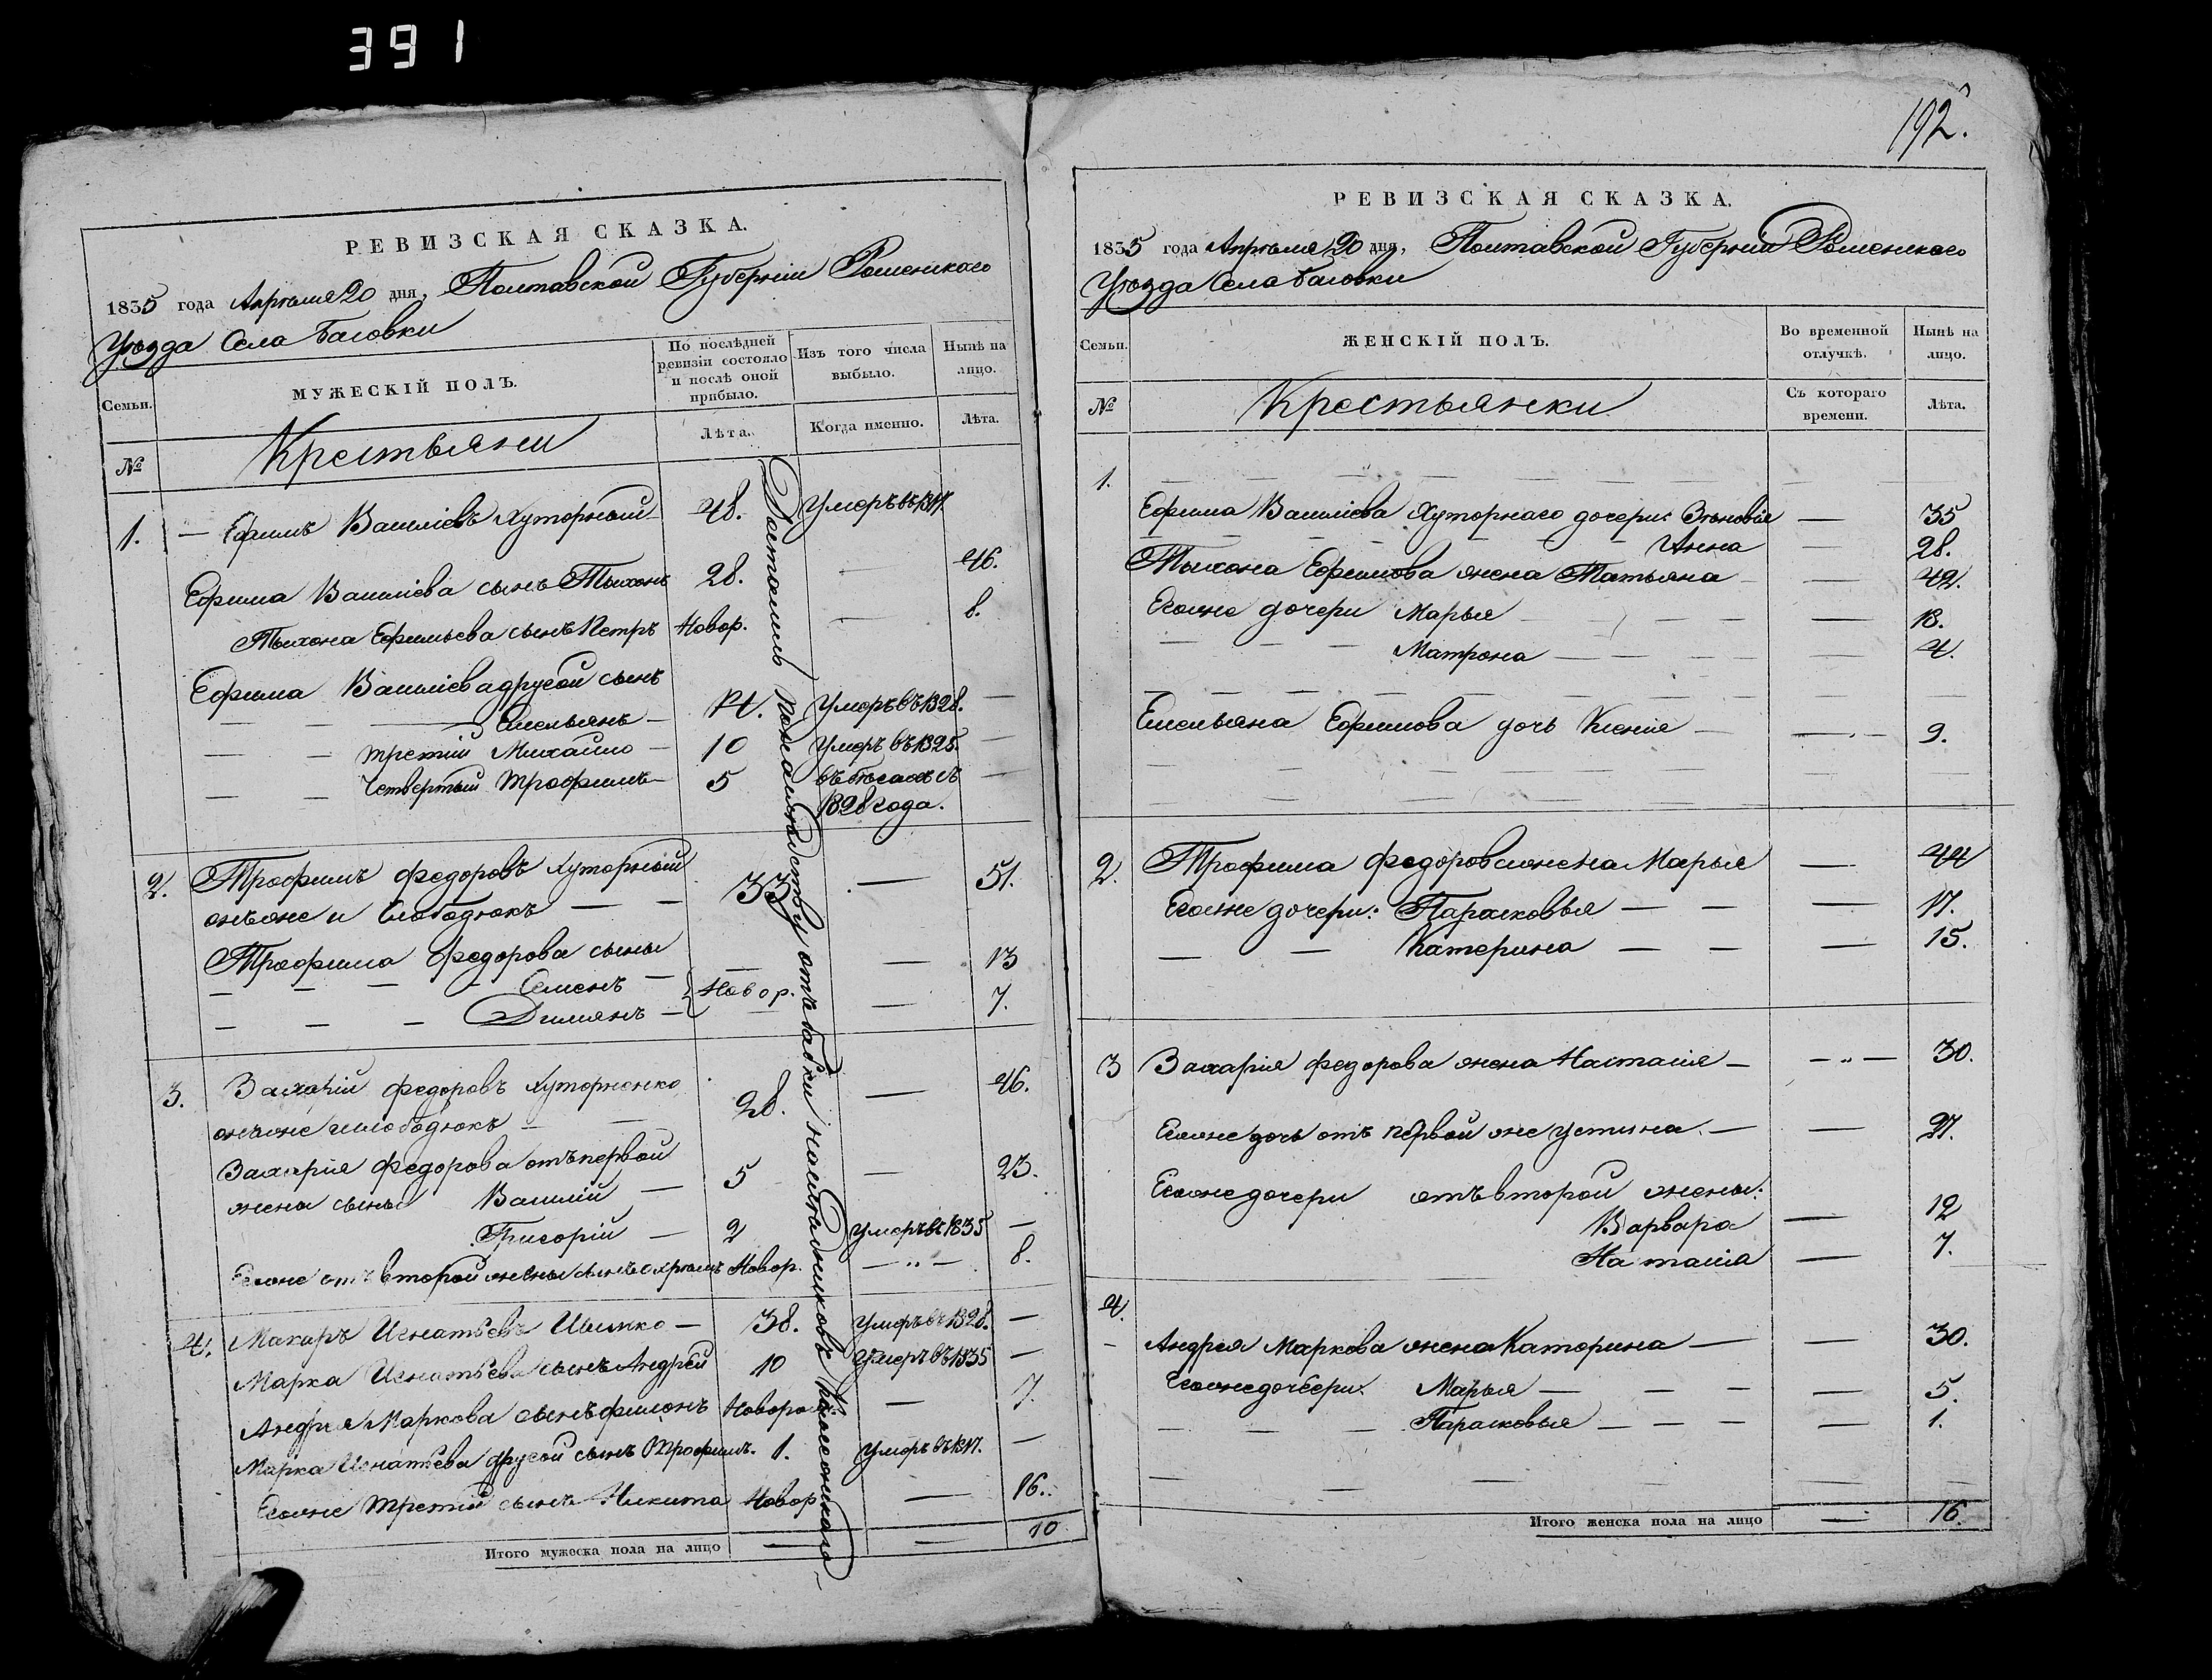 391
192.
РЕВИЗСКАЯ СКАЗКА.
1835 года Апреля 20 дня, Полтавской Губернiи Роменскаго
Уезда Села Басовки
Семьи. МУЖЕСКIЙ ПОЛЪ. По послѣдней ревизiи состояло и послѣ оной прибыло. Изъ того числа выбыло. Нынѣ на лицо.
№ Крестьяни Лѣта. Когда именно. Лѣта.
1. Ефимъ Василiевъ Хуторный 48. Умеръ въ 1817.
Ефима Василiева сынъ Тыхонъ 28. 46.
Тыхона Ефимьева сынъ Петръ Новор. 8.
Ефима Василiева другой сынъ
Емельянъ 14. Умеръ въ 1828.
третiй Михайло 10 Умеръ въ 1825.
Четвертый Трофимъ 5 въ бегахъ съ
1828 года.
2. Трофимъ Федоровъ Хуторный 33 51.
онъже и Слободюкъ
Трофима Федорова сыны
Семенъ Новор. 13
Димянъ 7.
3. Захарiй Федоровъ Хуторненко 28. 46.
онъже и слободюкъ
Захарiя Федорова отъ первой
жены сыны Василiй 5 23.
Григорiй 2 умеръ въ 1835
Егоже отъ второй жены сынъ Охримъ Новор. 8.
4. Макаръ Игнатьевъ 38. умеръ въ 1828.
Марка Игнатьева сынъ Андрей 10 Умеръ въ 1835
Андрея Маркова сынъ Филонъ Новорож. 7.
Марка Игнатьева другой сынъ Трофимъ. 1. умеръ въ 1817.
Егоже третiй сынъ Никита Новор 16.
Итого мужеска пола на лицо 10
Достались по наследству отъ бабки наследниковъ
РЕВИЗСКАЯ СКАЗКА.
1835 года Апреля 20 дня, Полтавской Губернiи Роменскаго
Уезда Села Басовки
Семьи. ЖЕНСКIЙ ПОЛЪ. Во временной отлучкѣ. Нынѣ на лицо.
№ Крестьянки Съ котораго времени. Лѣта.
1.
Ефима Василiева Хуторнаго дочери: Зѣновiя 35
Анна 28.
Тыхона Ефимова жена Татьяна 42.
Егоже дочери Марья 13.
Матрона 4.
Емельяна Ефимова дочь Ксенiя 9.
2. Трофима Федорова жена Марья 44
Егоже дочери: Парасковья 17.
Катерина 15.
3 Захарiя Федорова жена Настасiя 30.
Егоже дочь отъ первой же Устина 21.
Егоже дочери отъ второй жены:
Варвара 12
Настасiя 7.
4.
Андрея Маркова жена Катерина 30.
Егоже дочери Марья 5.
Парасковья 1.
Итого женска пола на лицо 16.